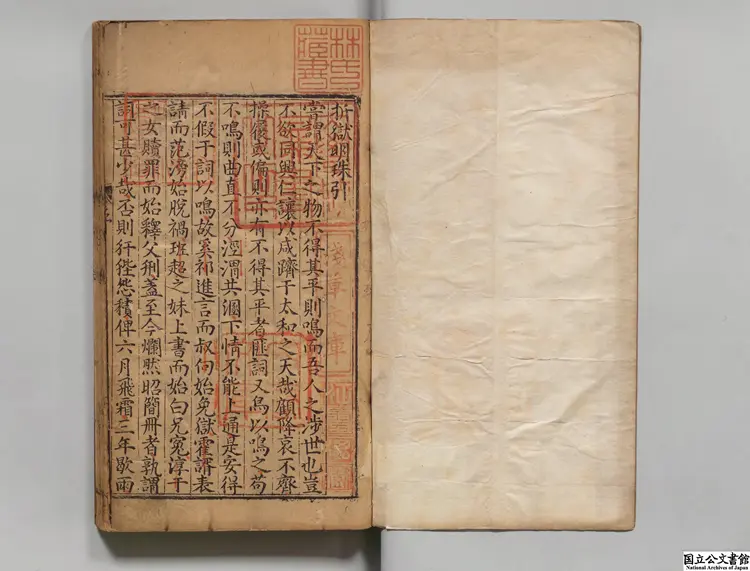 林氏藏書
折獄明珠引
嘗謂天下之物不得其平則鳴而吾人之涉世也豈
不欲同興仁讓以咸躋于太和之天哉顧降衷不齊
操履或偏則亦有不得其平者匪詞又烏以鳴之苟
不鳴則曲直不分涇渭共溷下情不能上通是安得
不假于詞以鳴故奚祁進言而叔向始免獄霍諝表
請而范滂始脫禍班超之妹上書而始白兄冤淳于
之女贖罪而始釋父刑蓋至今爛然昭簡冊者孰謂
詞可甚少哉否則犴狴怨積俾六月飛霜三年歇雨
淺草文庫
国立公文書館
National Archives of Japan